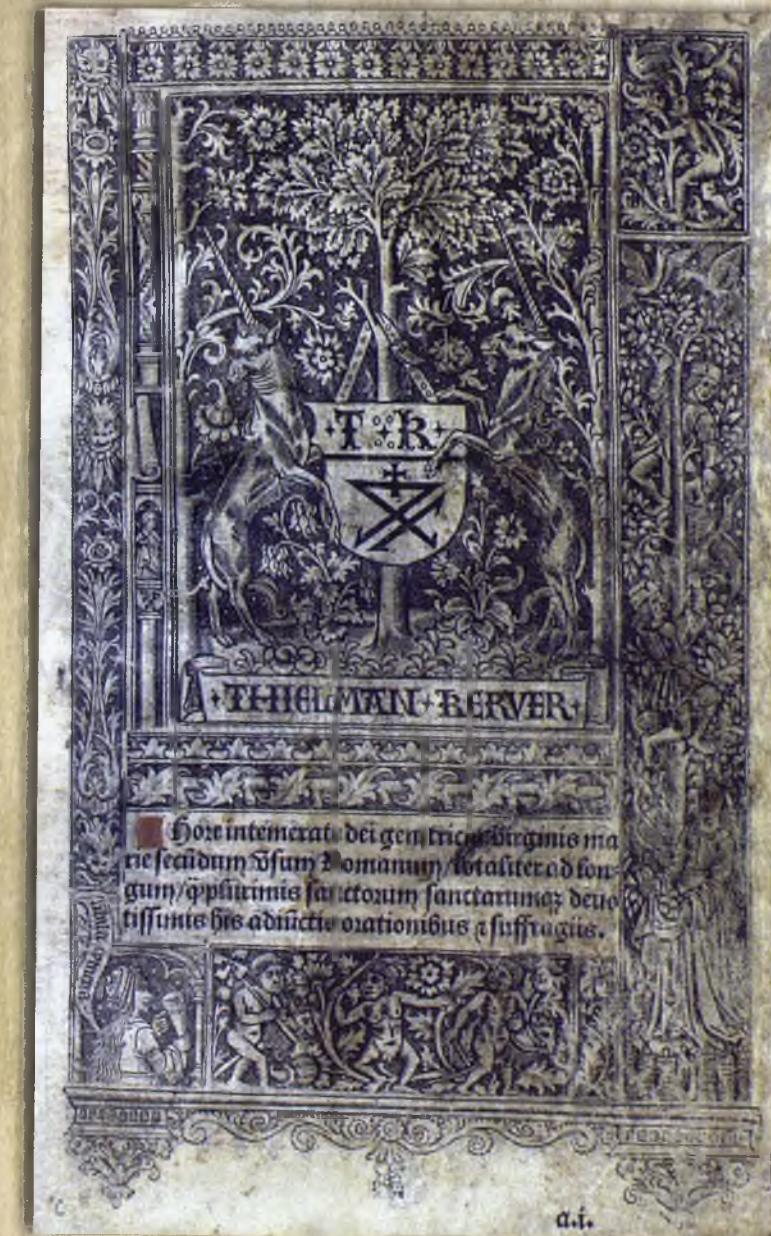 T K
THIELMAN KERVER
Hore intemerate dei genitricis virginis ma
rie secũdum Vsum Romanum/totaliter ad lon
gum/ cũ plurimis sanctorum sanctarumqȝ deuo
tissimis his adiũctis orationibus ⁊ suffragiis.
a.i.